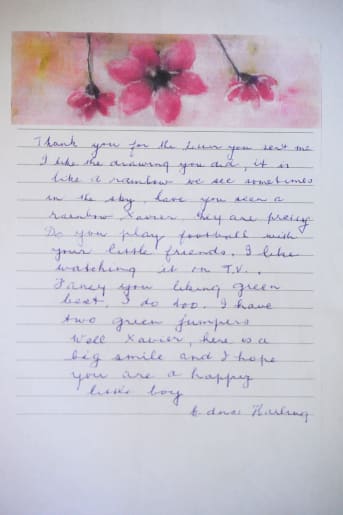 Thank you for the letter you sent me
I like the drawing you did, it is
like a rainbow we see sometimes
in the sky, have you seen a
rainbow Xavier, they are pretty
Do you play football with
your little friends. I like
watching it on T.V..
Fancy you liking green
best, I do too. I have
two green jumpers
Well Xavier, here is a
big smile and I hope
you are a happy
little boy
Edna